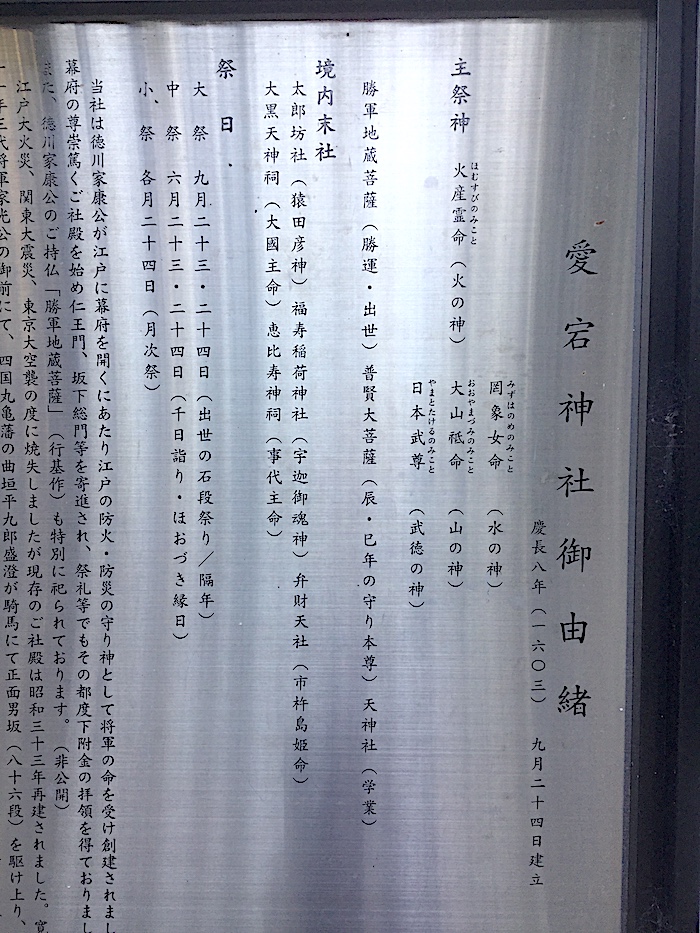 愛宕神社御由緒
慶長八年（一六〇三）　九月二十四日建立
主祭神　火産霊命（火の神）
ほむすびのみこと
罔象女命（水の神）
みずはのめのみこと
大山祗命（山の神）
おおやまづみのみこと
日本武尊（武徳の神）
やまとたけるのみこと
勝軍地蔵菩薩（勝運・出世）普賢大菩薩（辰・巳年の守り本尊）天神社（学業）
境内末社
太郎坊社（猿田彦神）福寿稲荷神社（宇迦御魂神）弁財天社（市杵島姫命）
大黒天神祠（大國主命）恵比寿神祠（事代主命）
祭日
大祭　九月二十三・二十四日（出世の石段祭り／隔年）
中祭　六月二十三・二十四日（千日詣り・ほおづき縁日）
小祭　各月二十四日（月次祭）
当社は徳川家康公が江戸に幕府を開くにあたり江戸の防火・防災の守り神として将軍の命を受け創建されまし
幕府の尊崇篤くご社殿を始め仁王門、坂下総門等を寄進され、祭礼等でもその都度下附金の拝領を得ておりまし
また、徳川家康公のご持仏「勝軍地蔵菩薩」（行基作）も特別に祀られております。（非公開）
江戸大火災、関東大震災、東京大空襲の度に焼失しましたが現存のご社殿は昭和三十三年再建されました。寛
十一年三代将軍家光公の御前にて、四国丸亀藩の曲垣平九郎盛澄が騎馬にて正面男坂（八十六段）を駆け上り、